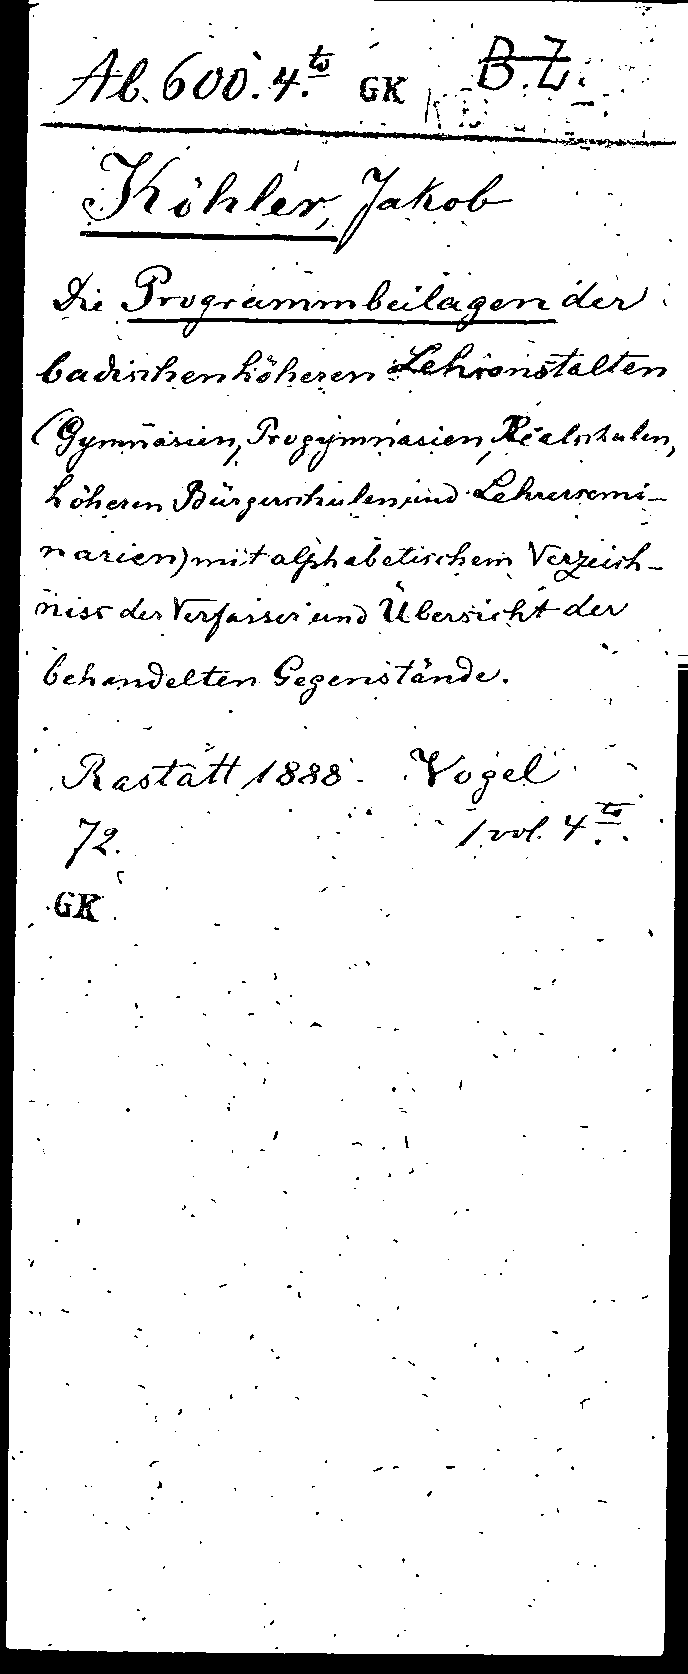 Ab. 600. 4.to GK B.Z.
Köhler, Jakob
Die Programmbeilagen der
badischen höheren Lehranstalten
(Gymnasien, Progymnasien, Realschulen,
höheren Bürgerschulen und Lehrersemi-
narien) mit alphabetischem Verzeich-
niss der Verfasser und Übersicht der
behandelten Gegenstände.
Rastatt 1888. Vogel
72. 1 vol. 4.to
GK